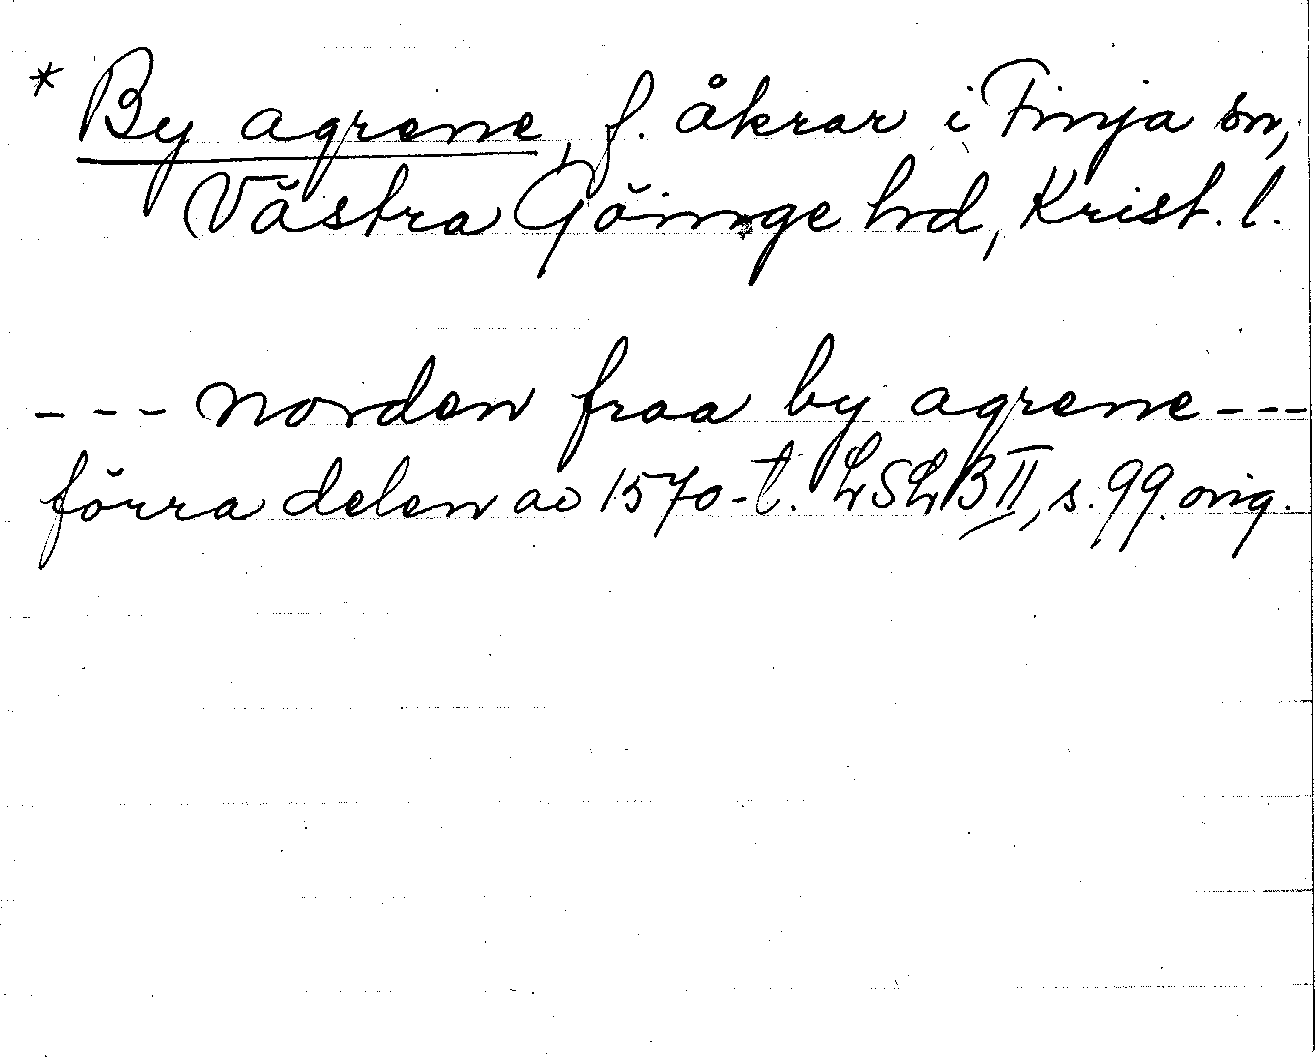 * By agrene, f. åkrar i Finja sn,
Västra Göinge hd, Krist. l.
--- norden fraa by agrene ---
förra delen av 1570-t. LSLB II, s. 99. orig.